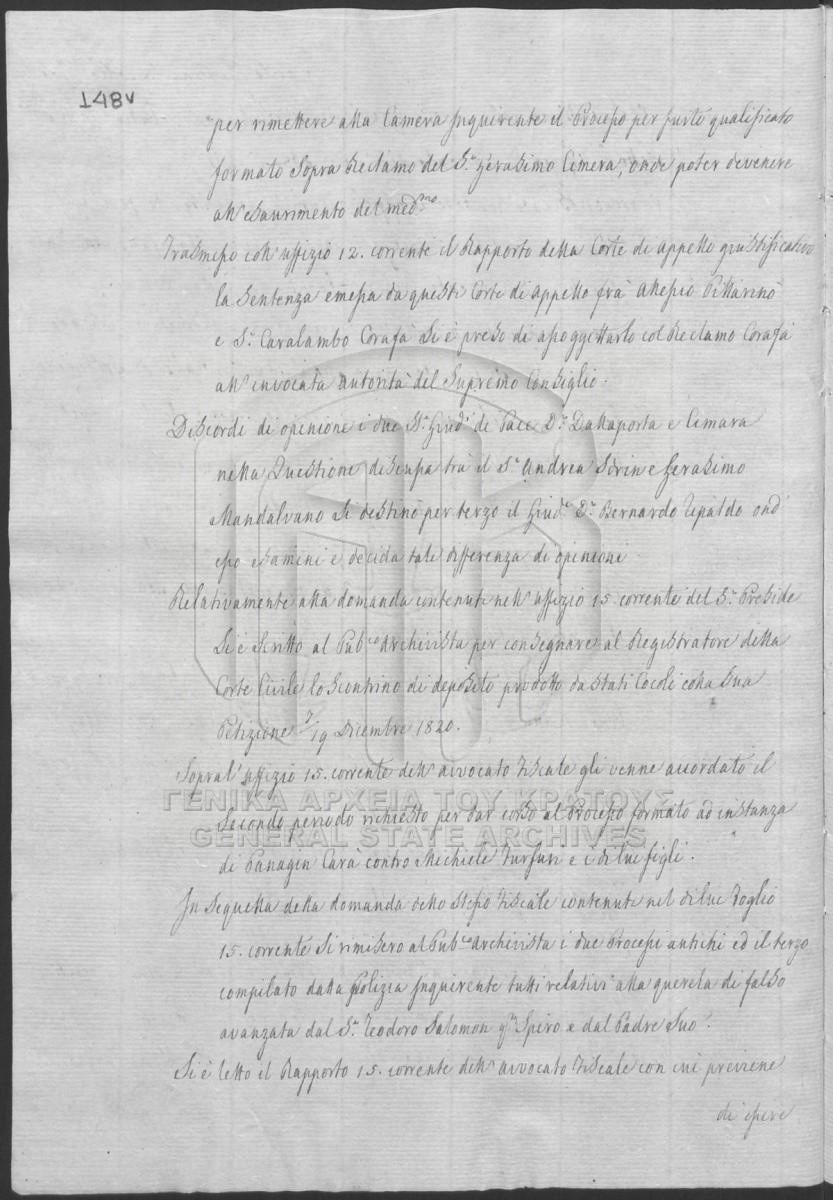 148v
per rimettere alla Camera Inquirente il Processo per furto qualificato
formato sopra Reclamo del S.r Gerasimo Cimera, onde poter devenire
all'esaurimento del med.mo
Trasmesso coll'uffizio 12. corrente il Rapporto della Corte di Appello giustificativo
la Sentenza emessa da questa Corte di Appello frà Allessio Pillarinò
e S.r Caralambo Corafà si è preso di assoggettarlo col Reclamo Corafà
all'invocata autorità del Supremo Consiglio.
Discordi di opinione i due S.ri Giud.i di Pace D.r Dallaporta e Cimara
nella Questione discussa trà il S.r Andrea e Gerasimo
Mandalvano si destinò per terzo il Giud.e D.r Bernardo Tipaldo ond'
esso esamini e decida tale differenza di opinioni.
Relativamente alla domanda contenuta nell'uffizio 15. corrente del S.r Preside
Si è scritto al Pub.co Archivista per consegnare al Registratore della
Corte Civile lo scontrino di deposito prodotto da Stati Cocoli colla sua
Petizione 7/19 Dicembre 1820.
Sopra l'uffizio 15. corrente dell'avvocato Fiscale gli venne accordato il
secondo periodo richiesto per dar corso al Processo formato ad instanza
di Panagin Carà contro Michiele e i di lui figli.
In sequella della domanda dello stesso Fiscale contenuta nel di lui Foglio
15. corrente si rimisero al Pub.co Archivista i due Processi antichi ed il terzo
compilato dalla Polizia Inquirente tutti relativi alla querela di falso
avanzata dal S.r Teodoro Salomon q.m Spiro e dal Padre suo.
Si è letto il Rapporto 15. corrente dell'avvocato Fiscale con cui previene
di essere
ΓΕΝΙΚΑ ΑΡΧΕΙΑ ΤΟΥ ΚΡΑΤΟΥΣ
GENERAL STATE ARCHIVES